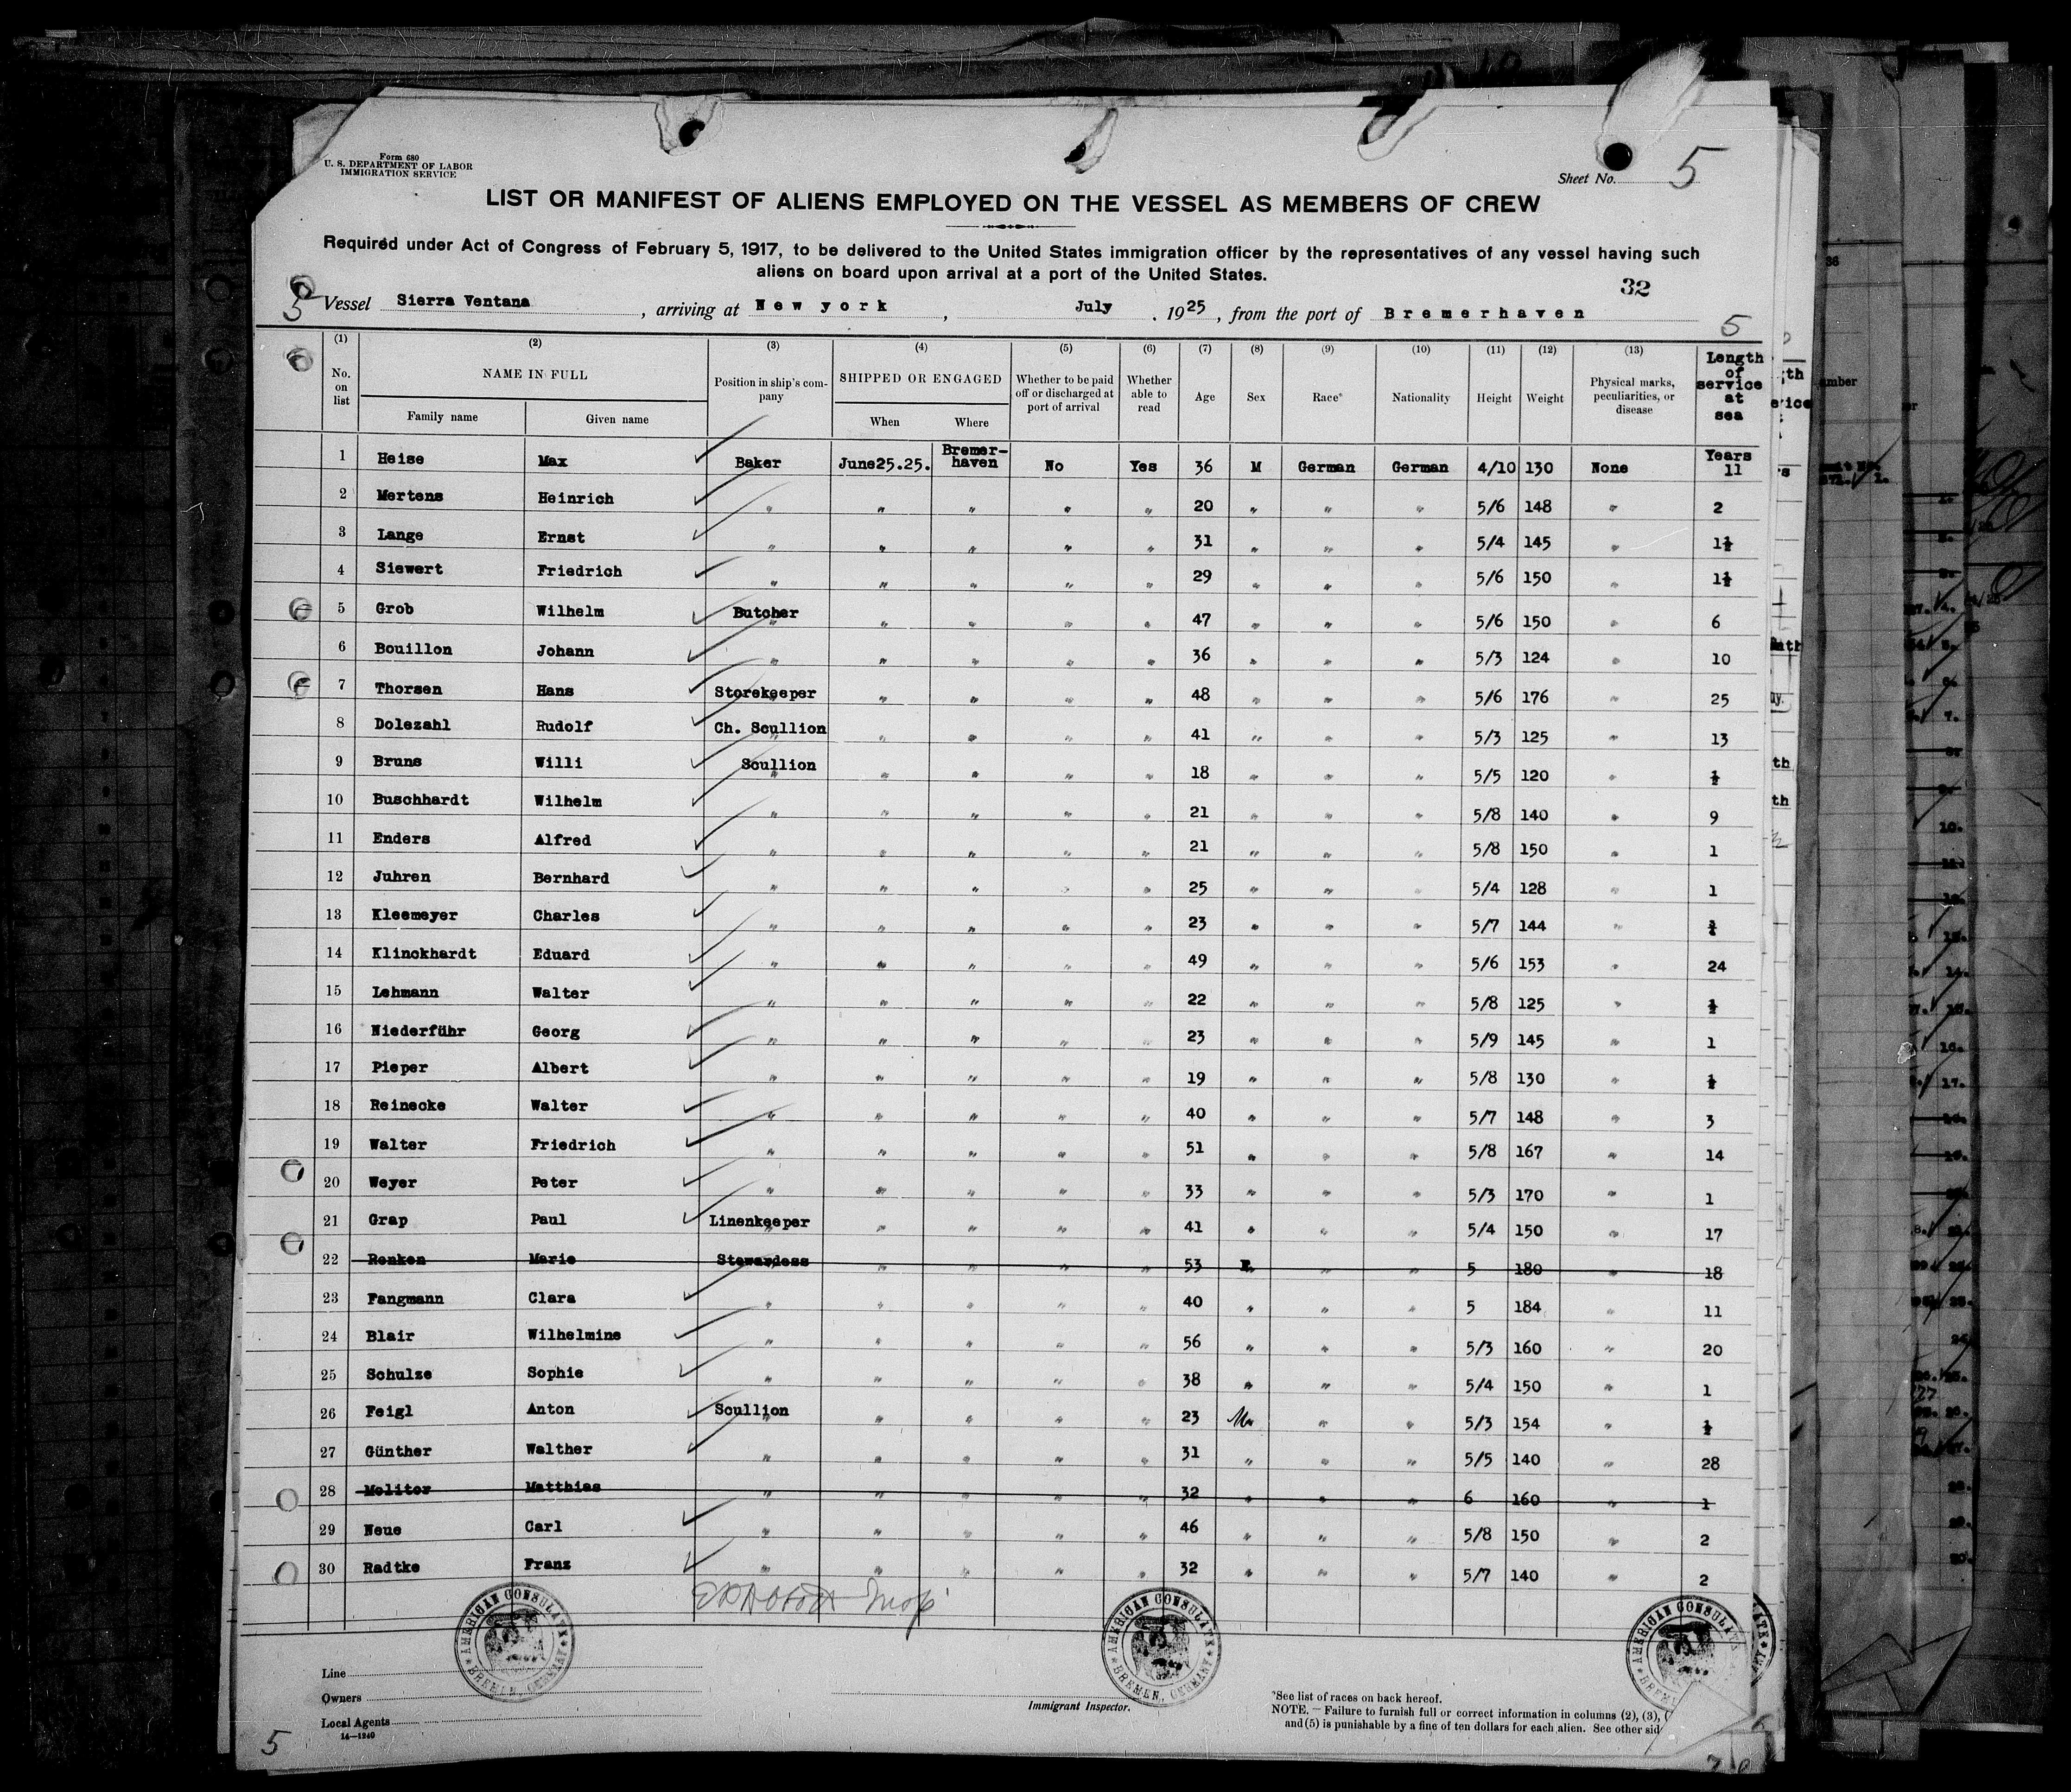 Form 680
U. S. DEPARTMENT OF LABOR
IMMIGRATION SERVICE
Sheet No. 5
LIST OR MANIFEST OF ALIENS EMPLOYED ON THE VESSEL AS MEMBERS OF CREW
Required under Act of Congress of February 5, 1917, to be delivered to the United States immigration officer by the representatives of any vessel having such
aliens on board upon arrival at a port of the United States.
32
5 Vessel Sierra Ventana, arriving at New york, July, 1925, from the port of Bremerhaven
5
(1) (2) (3) (4) (5) (6) (7) (8) (9) (10) (11) (12) (13)
No. on list NAME IN FULL Family name Given name Position in ship's company SHIPPED OR ENGAGED When Where Whether to be paid off or discharged at port of arrival Whether able to read Age Sex Race* Nationality Height Weight Physical marks, peculiarities, or disease Length of service at sea
1 Heise Max Baker June25.25. Bremerhaven No Yes 36 M German German 4/10 130 None Years 11
2 Mertens Heinrich " " " " " 20 " " " 5/6 148 " 2
3 Lange Ernst " " " " " 31 " " " 5/4 145 " 1½
4 Siewert Friedrich " " " " " 29 " " " 5/6 150 " 1½
5 Grob Wilhelm Butcher " " " " 47 " " " 5/6 150 " 6
6 Bouillon Johann " " " " " 36 " " " 5/3 124 " 10
7 Thorsen Hans Storekeeper " " " " 48 " " " 5/6 176 " 25
8 Dolezahl Rudolf Ch. Scullion " " " " 41 " " " 5/3 125 " 13
9 Bruns Willi Scullion " " " " 18 " " " 5/5 120 " ½
10 Buschhardt Wilhelm " " " " " 21 " " " 5/8 140 " 9
11 Enders Alfred " " " " " 21 " " " 5/8 150 " 1
12 Juhren Bernhard " " " " " 25 " " " 5/4 128 " 1
13 Kleemeyer Charles " " " " " 23 " " " 5/7 144 "
14 Klinckhardt Eduard " " " " " 49 " " " 5/6 153 " 24
15 Lehmann Walter " " " " " 22 " " " 5/8 125 " ½
16 Niederführ Georg " " " " " 23 " " " 5/9 145 " 1
17 Pieper Albert " " " " " 19 " " " 5/8 130 " ½
18 Reinecke Walter " " " " " 40 " " " 5/7 148 " 3
19 Walter Friedrich " " " " " 51 " " " 5/8 167 " 14
20 Weyer Peter " " " " " 33 " " " 5/3 170 " 1
21 Grap Paul Linenkeeper " " " " 41 " " " 5/4 150 " 17
22 Renken Marie Stewardess " " " " 53 F " " 5 180 " 18
23 Fangmann Clara " " " " " 40 " " " 5 184 " 11
24 Blair Wilhelmine " " " " " 56 " " " 5/3 160 " 20
25 Schulze Sophie " " " " " 38 " " " 5/4 150 " 1
26 Feigl Anton Scullion " " " " 23 M " " 5/3 154 " ½
27 Günther Walther " " " " " 31 " " " 5/5 140 " 28
28 Molitor Matthias " " " " " 32 " " " 6 160 " 1
29 Neue Carl " " " " " 46 " " " 5/8 150 " 2
30 Radtke Franz " " " " " 32 " " " 5/7 140 " 2
AMERICAN CONSULATE BREMEN, GERMANY
AMERICAN CONSULATE BREMEN, GERMANY
AMERICAN CONSULATE
Line
Owners
Local Agents
14—1240
Immigrant Inspector.
*See list of races on back hereof.
NOTE.—Failure to furnish full or correct information in columns (2), (3),
and (5) is punishable by a fine of ten dollars for each alien. See other
5